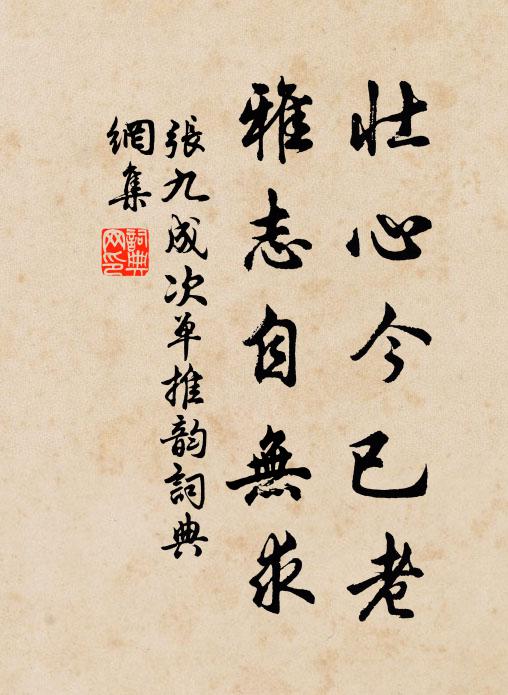 壮心今已老
雅志自無求
張九成次单推韵詞典
網集
詞典
网印